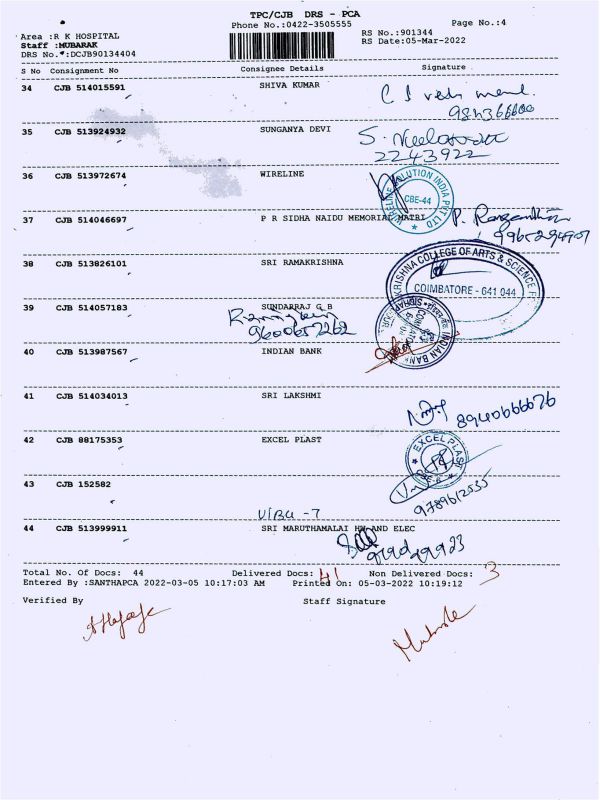 TPC/CJB DRS - PCA
Phone No.:0422-3505555
Page No.:4
Area :R K HOSPITAL
RS No.:901344
Staff :MUBARAK
RS Date:05-Mar-2022
DRS No.:DCJB90134404
S No Consignment No Consignee Details Signature
34 CJB 514015591 SHIVA KUMAR
35 CJB 513924932 SUNGANYA DEVI
2243922
36 CJB 513972674 WIRELINE
SOLUTION INDIA PVT LTD
CBE-44
37 CJB 514046697 P R SIDHA NAIDU MEMORIAL MATRI
38 CJB 513826101 SRI RAMAKRISHNA
KRISHNA COLLEGE OF ARTS & SCIENCE
COIMBATORE - 641 044
39 CJB 514057183 SUNDARRAJ G B
9600657262
40 CJB 513987567 INDIAN BANK
INDIAN BANK
41 CJB 514034013 SRI LAKSHMI
8940666676
42 CJB 88175353 EXCEL PLAST
EXCEL PLAST
43 CJB 152582
9789612535
44 CJB 513999911 SRI MARUTHAMALAI HW AND ELEC
Total No. Of Docs: 44 Delivered Docs: 41 Non Delivered Docs: 3
Entered By :SANTHAPCA 2022-03-05 10:17:03 AM Printed On: 05-03-2022 10:19:12
Verified By Staff Signature